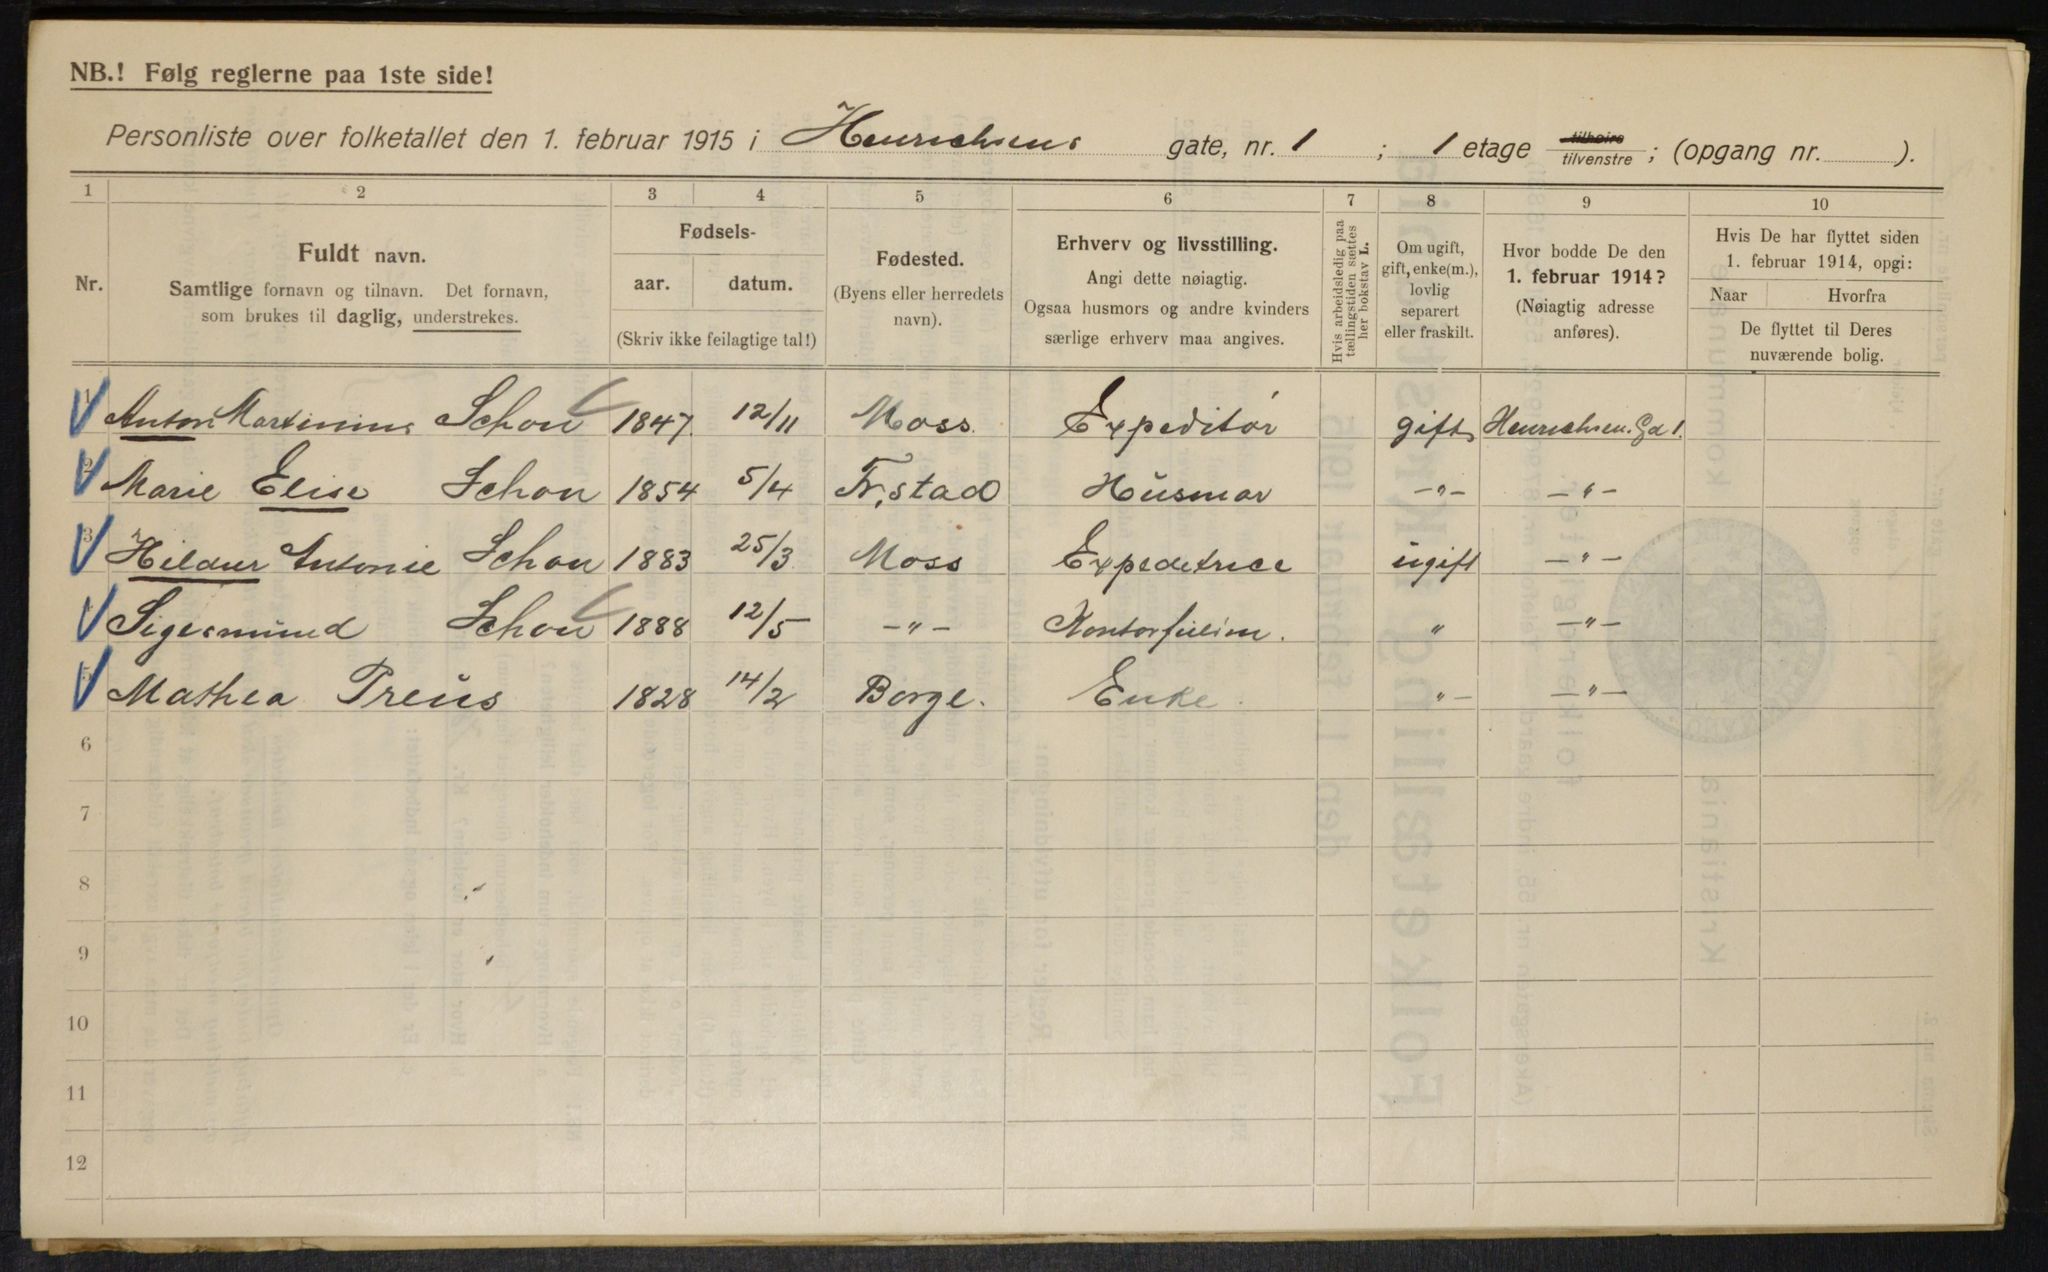 NB.! Følg reglerne paa 1ste side!
Personliste over folketallet den 1. februar 1915 i Henrichsens gate, nr. 1 ; 1 etage tilhøire tilvenstre ; (opgang nr. ).
1 2 3 4 5 6 7 8 9 10
Nr.
Fuldt navn.
Samtlige fornavn og tilnavn. Det fornavn,
som brukes til daglig, understrekes.
Fødsels-
aar. datum.
(Skriv ikke feilagtige tal!)
Fødested.
(Byens eller herredets
navn).
Erhverv og livsstilling.
Angi dette nøiagtig.
Ogsaa husmors og andre kvinders
særlige erhverv maa angives.
Hvis arbeidsledig paa
tællingstiden sættes
her bokstav L.
Om ugift,
gift, enke(m.),
lovlig
separert
eller fraskilt.
Hvor bodde De den
1. februar 1914?
(Nøiagtig adresse
anføres).
Hvis De har flyttet siden
1. februar 1914, opgi:
Naar Hvorfra
De flyttet til Deres
nuværende bolig.
1 Anton Martinius Schou 1847. 12/11 Moss. Expeditør gift Henrichsen.Gd 1.
2 Marie Elise Schou 1854 5/4 Fr.stad Husmor -"- -"-
3 Hildur Antonie Schou 1883 25/3 Moss Expeditrice ugift -"-
4 Sigesmund Schou 1888 12/5 -"- " -"-
5 Mathea Preus 1828 14/2 Borge. Enke "- -"-
6
7
8
9
10
11
12